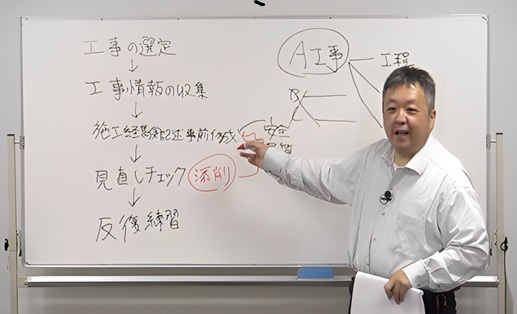 工事の選定
工事情報の収集
施工経験記述事前作成
見直しチェック 添削
反復練習
A工事
工程
B
安全